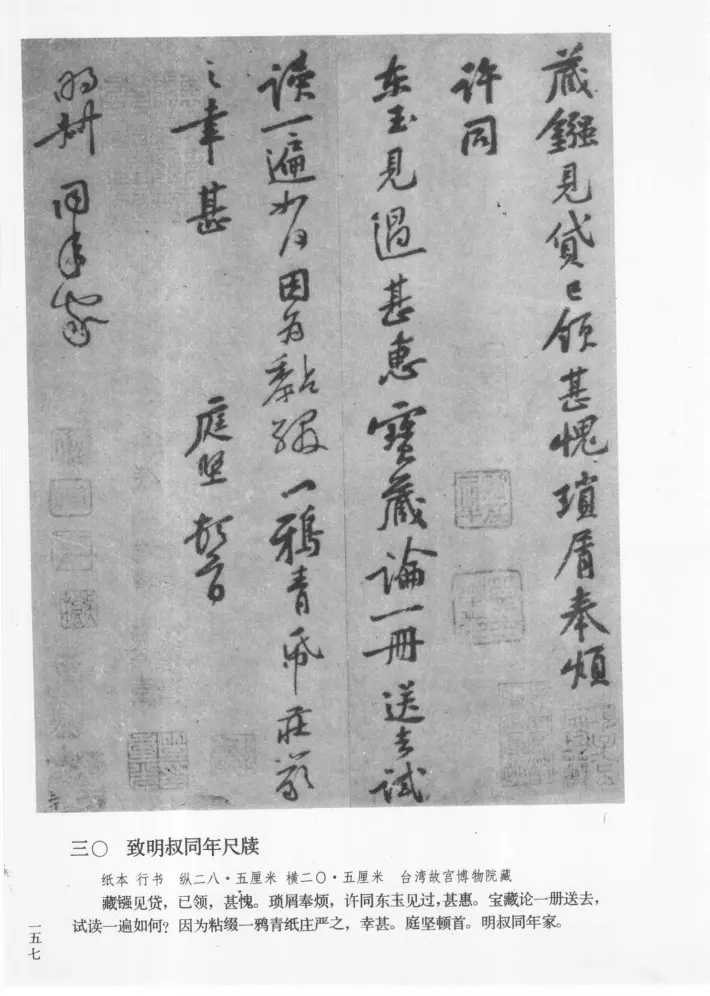 藏鏹見貸已領甚愧瑣屑奉煩
許同
东玉見過甚惠寶藏論一冊送去試
读一遍如何因为黏缀一鴉青帋莊嚴
之幸甚 庭堅頓首
明叔同年家
三〇 致明叔同年尺牍
纸本 行书 纵二八·五厘米 横二〇·五厘米 台湾故宫博物院藏
藏镪见贷，已领，甚愧。琐屑奉烦，许同东玉见过，甚惠。宝藏论一册送去，
试读一遍如何？因为粘缀一鸦青纸庄严之，幸甚。庭坚顿首。明叔同年家。
一五七